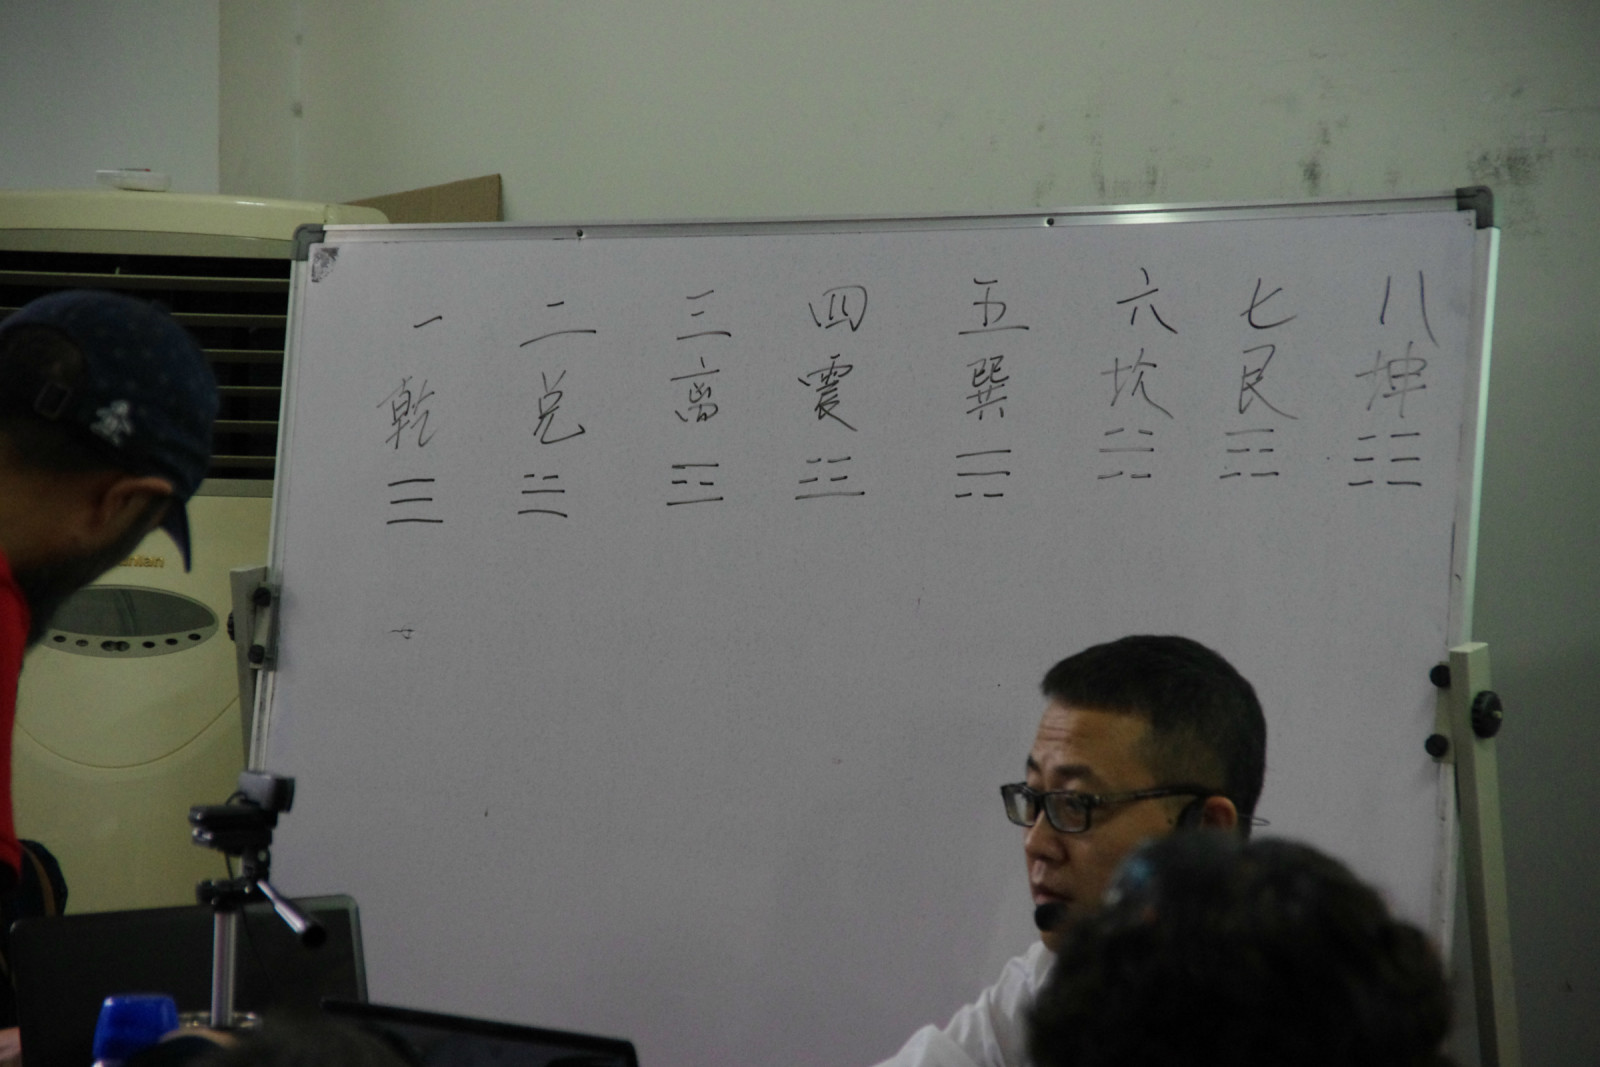 一 二 三 四 五 六 七 八
乾 兑 离 震 巽 坎 艮 坤
☰ ☱ ☲ ☳ ☴ ☵ ☶ ☷